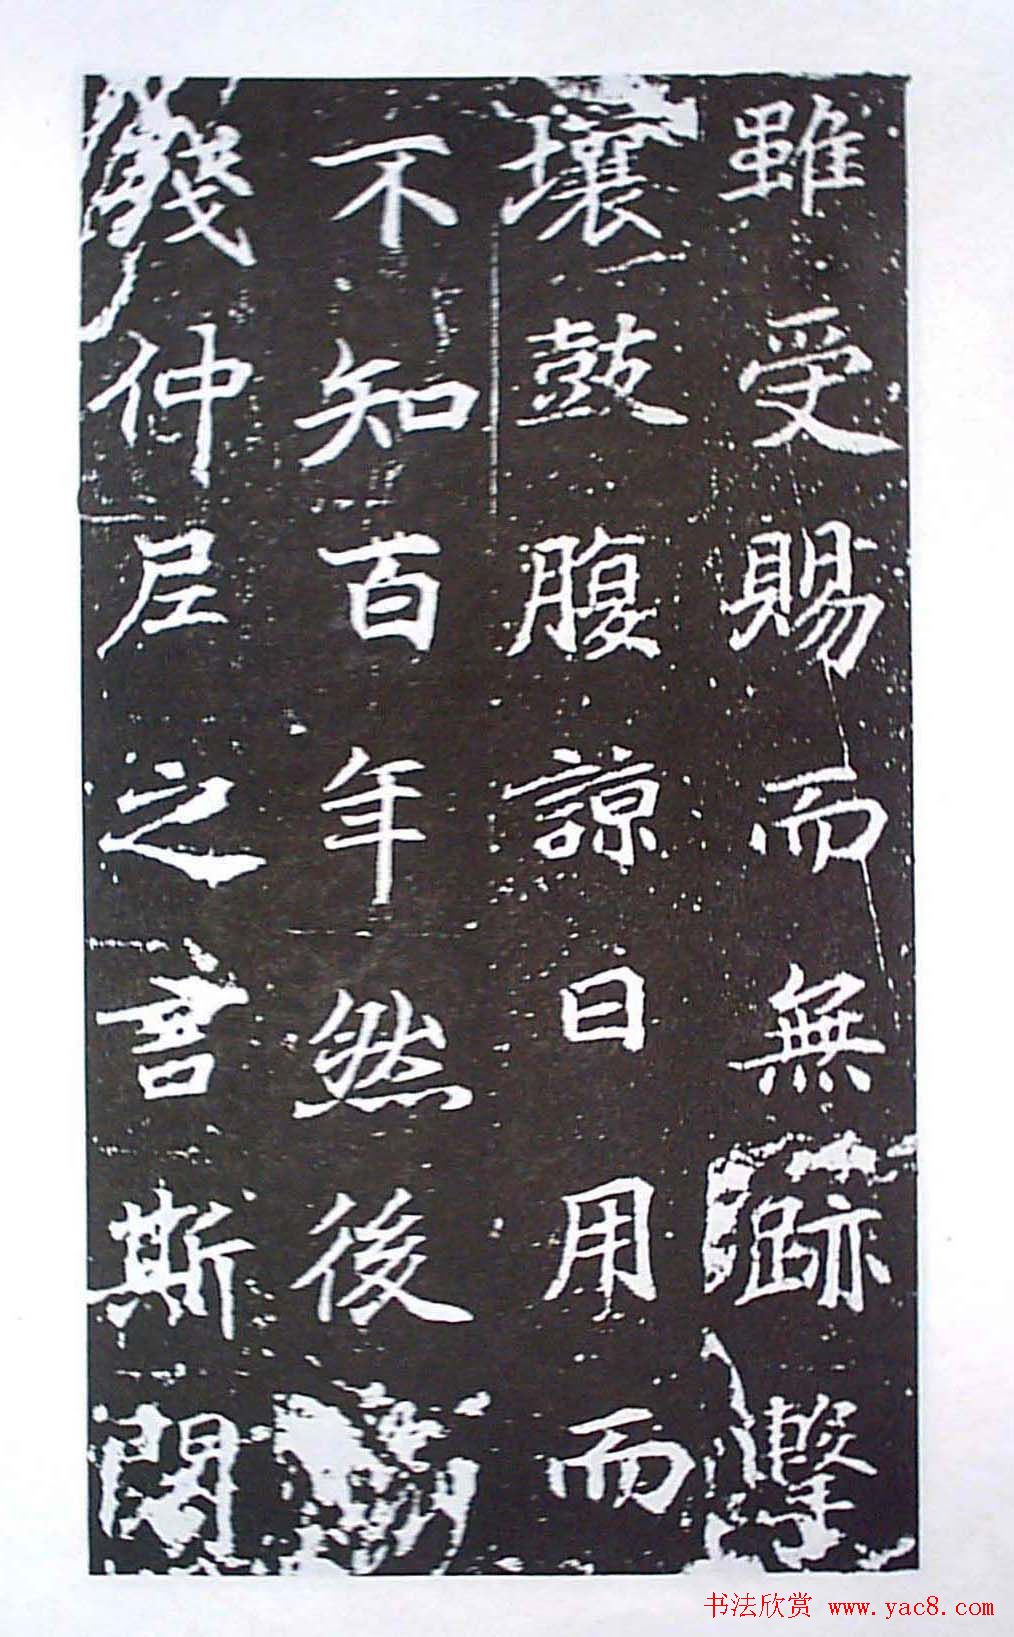 雖受賜而無跡擊
壤鼓腹諒日用而
不知百年然後
殘仲尼之言斯
书法欣赏 www.yac8.com